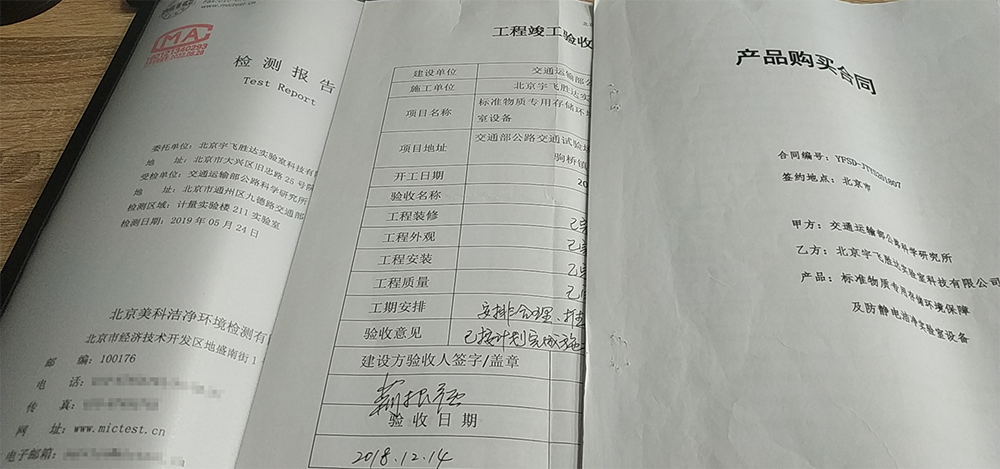 检测报告
Test Report
委托单位：北京宇飞胜达实验室科技有
地 址：北京市大兴区旧忠路25号院
受检单位：交通运输部公路科学研究所
地 址：北京市通州区九德路交通部
检测区域：计量实验楼211实验室
检测日期：2019年05月24日
北京美科洁净环境检测有
北京市经济技术开发区地盛南街1
邮 编：100176
电 话：
传 真：
网 址：www.mictest.cn
电子邮箱：
工程竣工验收
建设单位 交通运输部公
施工单位 北京宇飞胜达实
项目名称 标准物质专用存储环境
室设备
项目地址 交通部公路交通试验场
驹桥镇
开工日期 20
验收名称
工程装修 已完
工程外观 已
工程安装 已
工程质量 已
工期安排 安排合理、
验收意见 已按计划完成
建设方验收人签字/盖章
验收日期
2018.12.14
产品购买合同
合同编号：YFSD-JTYS201807
签约地点：北京市
甲方：交通运输部公路科学研究所
乙方：北京宇飞胜达实验室科技有限公司
产品：标准物质专用存储环境保障
及防静电洁净实验室设备